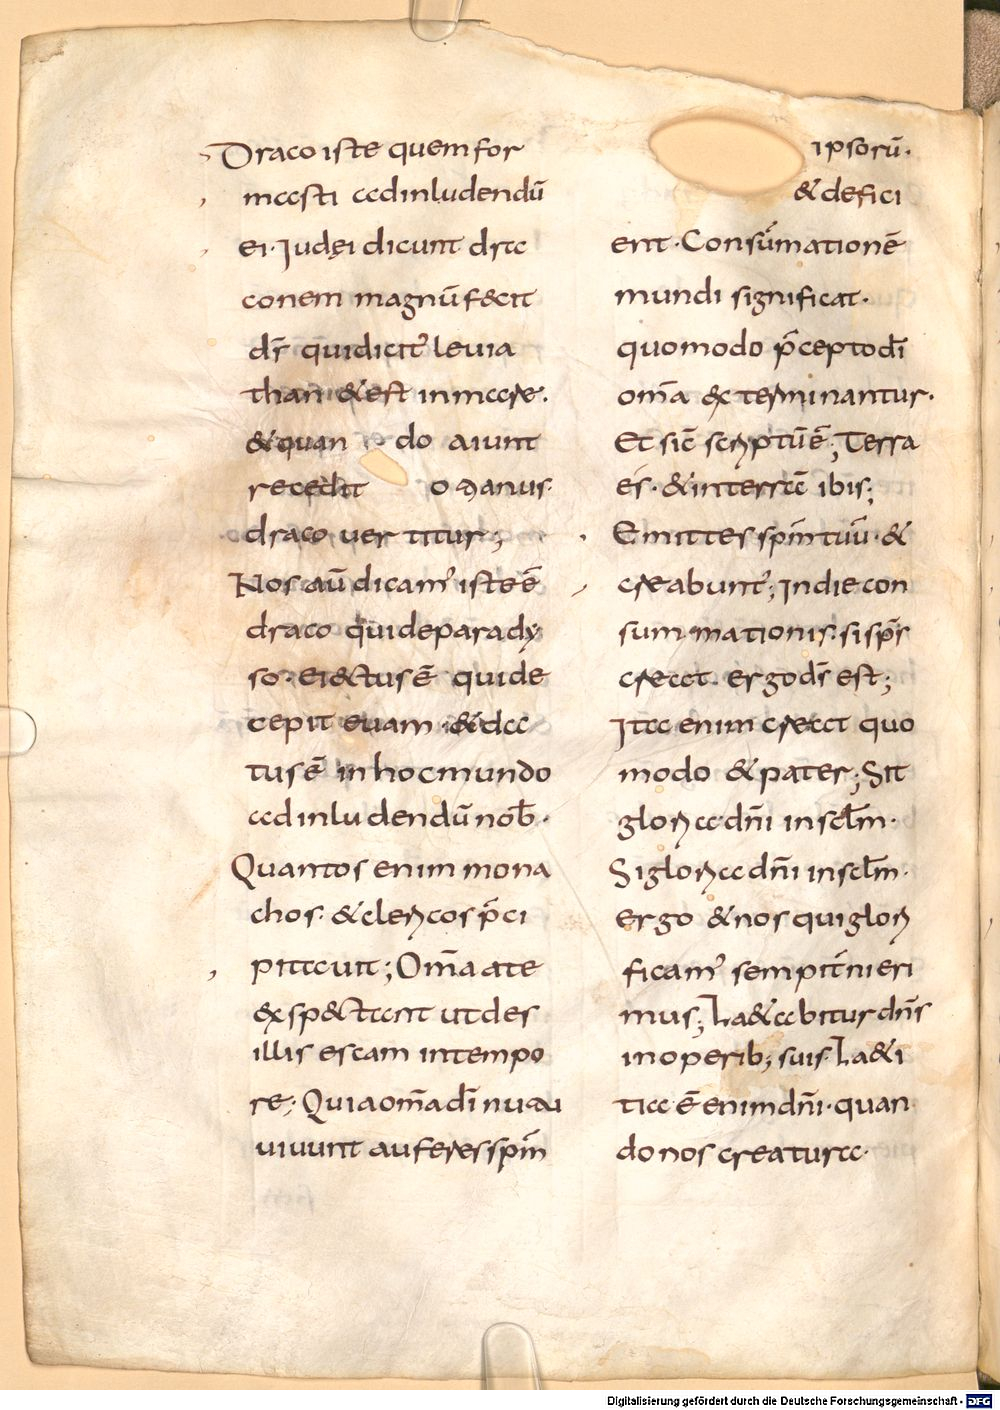 Draco iste quem for
masti ad inludendū
ei· Iudei dicunt dra
conem magnū fecit
dr̄ qui dicit' levia
than & est in mare·
& quando aiunt
recedit o manus
draco vertitur;
Nos aū dicam' iste ē
draco qui de parady
so· eiectus ē qui de
cepit evam· & da
tus ē in hoc mundo
ad inludendū nob̄·
Quantos enim mona
chos· & clericos p̄ci
pitavit; Om̄a a te
exspectant ut des
illis escam in tempo
re; Quia om̄a ad inu
vivunt auferes sp̄m
ipsorū·
& defici
ent· Consūmationē
mundi significat·
quomodo p̄cepto dī
om̄a exterminantur·
Et sic̄ scriptū ē; Terra
es· & in terra ibis;
Emittes sp̄m tuū· &
creabunt'; In die con
summationis· si sp̄s
creat· ergo ds̄ est;
Ita enim creat quo
modo & pater; Sit
gloria dn̄i in sclm̄·
Si gloria dn̄i in sclm̄·
ergo & nos qui glori
ficam' sempit̄ni eri
mus; La&abitur dn̄s
in operib; suis· La&i
tia ē enim dn̄i· quan
do nos creatura·
Digitalisierung gefördert durch die Deutsche Forschungsgemeinschaft - DFG